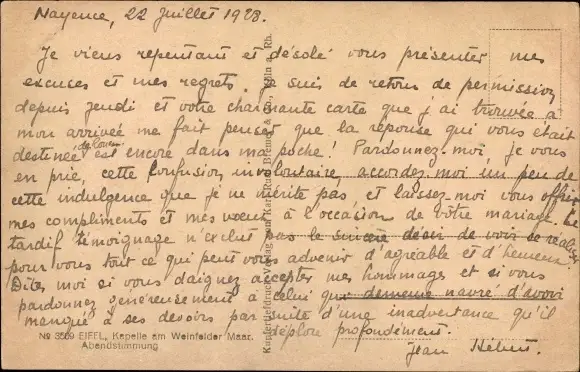 Mayence, 22 Juillet 1928.
Je viens repentant et désolé vous présenter mes
excuses et mes regrets. Je suis de retour de permission
depuis jeudi et votre charmante carte que j'ai trouvée à
mon arrivée me fait penser que la réponse qui vous était
destinée est encore dans ma poche! Pardonnez-moi, je vous
en prie, cette confusion involontaire, accordez-moi un peu de
cette indulgence que je ne mérite pas et laissez-moi vous offrir
mes compliments et mes vœux à l'occasion de votre mariage. Ce
tardif témoignage n'exclut pas le sincère désir de voir se réaliser
pour vous tout ce qui peut vous advenir d'agréable et d'heureux.
Dites moi si vous daignez accepter mes hommages et si vous
pardonnez généreusement à celui qui demeure navré d'avoir
manqué à ses devoirs par suite d'une inadvertance qu'il
déplore profondément.
Jean
No 3569 EIFEL, Kapelle am Weinfelder Maar.
Abendstimmung
Kupfertiefdruck-Verlag von Karl Rud. Bremer & Co., Köln a. Rh.